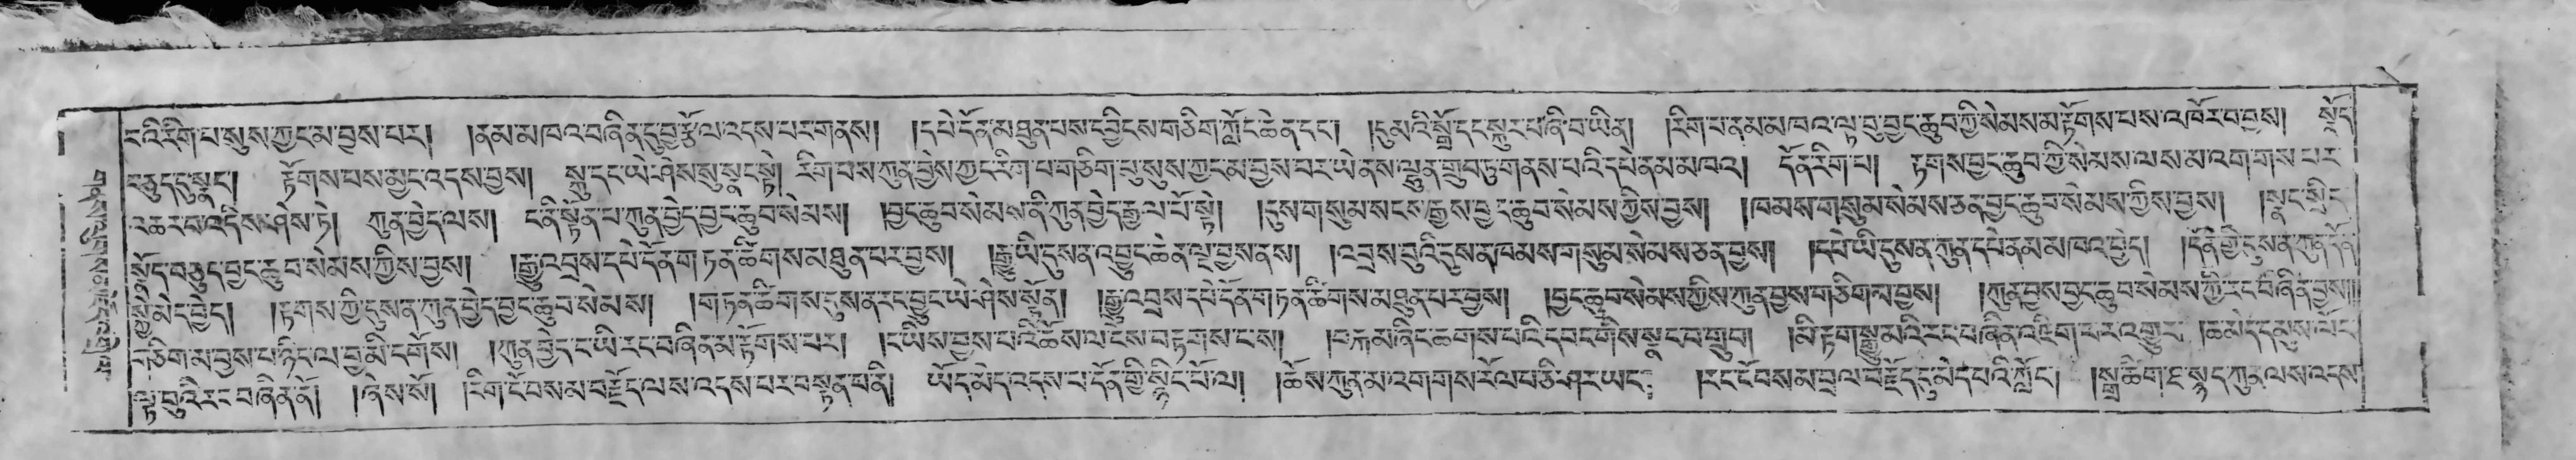 ངའི་རིག་པ་སུས་ཀྱང་མ་བྱས་པར། །ནམ་མཁའ་བཞིན་དུ་བྱ་རྩོལ་འདས་པར་གནས། །དཔེ་དོན་མཐུན་པས་དབྱིངས་གཅིག་ཀློང་ཆེན་དང་། །དུམ་འི་སྒྲོ་དང་སྐུར་པ་ནི་བ་ཡིན། །རིག་པ་ནམ་མཁའ་ལྟ་བུ་བྱང་ཆུབ་ཀྱི་སེམས་མ་རྟོགས་པས་འཁོར་བ་བྱས། སྣོད་
བཅུད་དུ་སྣང་། རྟོགས་པས་མྱང་འདས་བྱས། སྐུ་དང་ཡེ་ཤེས་སུ་སྣང་སྟེ། རིག་པས་ཀུན་བྱེས་ཀྱང་རིག་པ་གཅིག་པུ་སུས་ཀྱང་མ་བྱས་པར་ཡེ་ནས་ལྷུན་གྲུབ་ཏུ་གནས་པའི་དཔེ་ནམ་མཁའ། དོན་རིག་པ། རྟགས་བྱང་ཆུབ་ཀྱི་སེམས་ལས་མ་འགགས་པར་
འཆར་བ་འདིས་ཤེས་ཏེ། ཀུན་བྱེད་ལས། ང་ནི་སྟོན་པ་ཀུན་བྱེད་བྱང་ཆུབ་སེམས། །བྱང་ཆུབ་སེམས་ནི་ཀུན་བྱེད་རྒྱལ་པོ་སྟེ། །དུས་གསུམ་སངས་རྒྱས་བྱང་ཆུབ་སེམས་ཀྱིས་བྱས། །ཁམས་གསུམ་སེམས་ཅན་བྱང་ཆུབ་སེམས་ཀྱིས་བྱས། །སྣང་སྲིད་
སྣོད་བཅུད་བྱང་ཆུབ་སེམས་ཀྱིས་བྱས། །རྒྱུ་འབྲས་དཔེ་དོན་གཏན་ཚིགས་མཐུན་པར་བྱས། །རྒྱུ་ཡི་དུས་ན་འབྱུང་ཆེན་ལྔ་བྱས་ནས། །འབྲས་བུའི་དུས་ན་ཁམས་གསུམ་སེམས་ཅན་བྱས། །དཔེ་ཡི་དུས་ན་ཀུན་དཔེ་ནམ་མཁའ་བྱེད། །དོན་གྱི་དུས་ན་ཀུན་དོན་
སྐྱེ་མེད་བྱེད། །རྟགས་ཀྱི་དུས་ན་ཀུན་བྱེད་བྱང་ཆུབ་སེམས། །གཏན་ཚིགས་དུས་ན་རང་བྱུང་ཡེ་ཤེས་སྟོན། །རྒྱུ་འབྲས་དཔེ་དོན་གཏན་ཚིགས་མཐུན་པར་བྱས། །བྱང་ཆུབ་སེམས་ཀྱིས་ཀུན་བྱས་གཅིག་ལ་བྱས། །ཀུན་བྱས་བྱང་ཆུབ་སེམས་ཀྱི་རང་བཞིན་བྱས།།
ད་ཅིག་མ་བྱས་པ་ཉིད་ལ་བྱ་མི་དགོས། །ཀུན་བྱེད་ང་ཡི་རང་བཞིན་མ་རྟོགས་པར། །ང་ཡིས་བྱས་པའི་ཆོས་ལ་ངེས་བརྟགས་ངས། །ཆགས་པའི་དབང་གིས་སྣང་བ་གྲུབ། །མི་རྟག་སྒྱུ་མའི་རང་བཞིན་འཇིག་པར་འགྱུར། །ཆ་མེད་དམུས་ལོང་
ལྟ་བུའི་རང་བཞིན་ནོ། །ཞེས་སོ། །རིག་ངོ་བས་མ་བརྗོད་ལས་འདས་པར་བསྟན་པ་ནི། ཡོད་མེད་འདས་པ་དོན་གྱི་སྙིང་པོ་ལ། །ཆོས་ཀུན་མ་འགགས་རོལ་པ་ཅི་ཤར་ཡང་། །རང་ངོ་བས་མ་བྲལ་བརྗོད་དུ་མེད་པའི་ཀློང་། །སྒྲ་ཚིག་ཐ་སྙད་ཀུན་ལས་འདས་